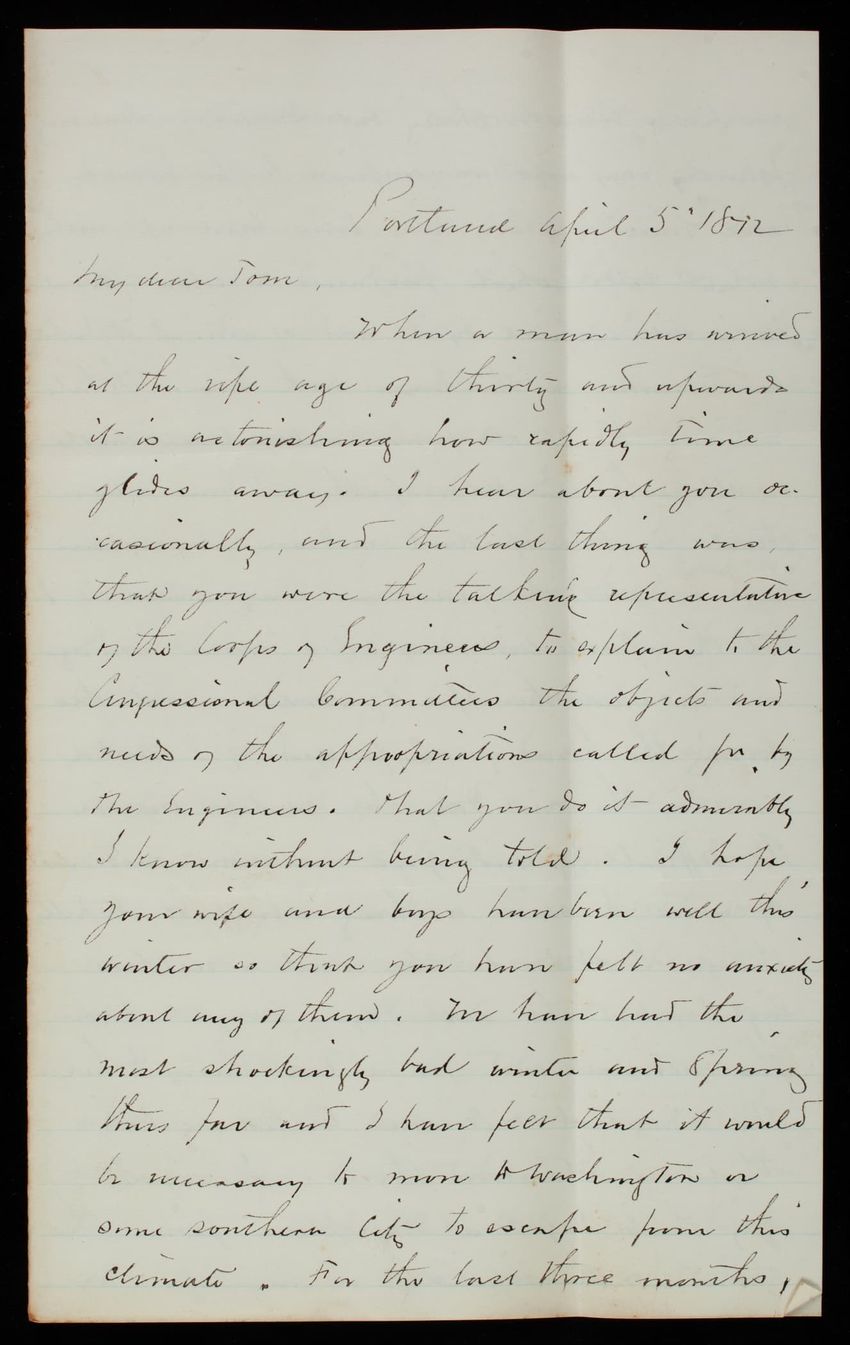 Portland April 5" 1872
My dear Tom,
When a man has arrived
at the ripe age of thirty and upwards
it is astonishing how rapidly time
glides away. I hear about you oc-
casionally, and the last thing was,
that you were the talking representative
of the Corps of Engineers, to explain to the
Congressional Committees the objects and
needs of the appropriations called for by
the Engineers. That you do it admirably
I know without being told. I hope
your wife and boys have been well this
winter so that you have felt no anxiety
about any of them. We have had the
most shockingly bad winter and Spring
thus far and I have felt that it would
be necessary to move to Washington or
some southern City to escape from this
climate. For the last three months,